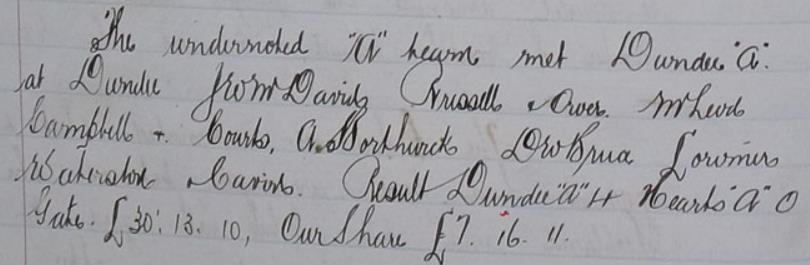 The undernoted "A" team met Dundee "A".
at Dundee from David, Russell & Over. McLeod
Campbell + Courts, A. Borthwick Lorimer
Waterston Cavin. Result Dundee "A" 4 Hearts "A" 0
Gate. £30. 13. 10, Our Share £7. 16. 11.